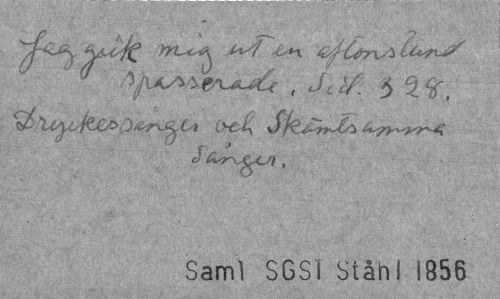 Jag gick mig ut en aftonstund
spasserade. Sid. 328.
Dryckessånger och Skämtsamma
Sånger.
Saml SGSI Ståhl 1856